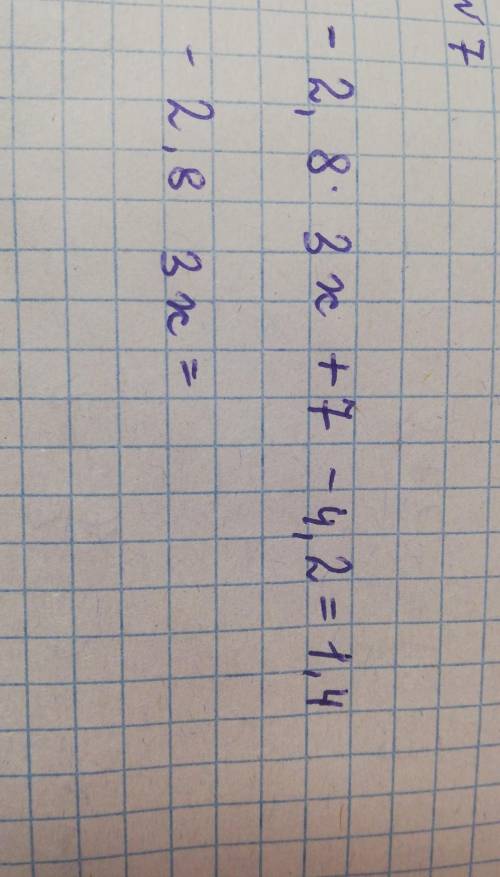 №7
- 2,8 · 3x + 7 - 4,2 = 1,4
- 2,8 3x =